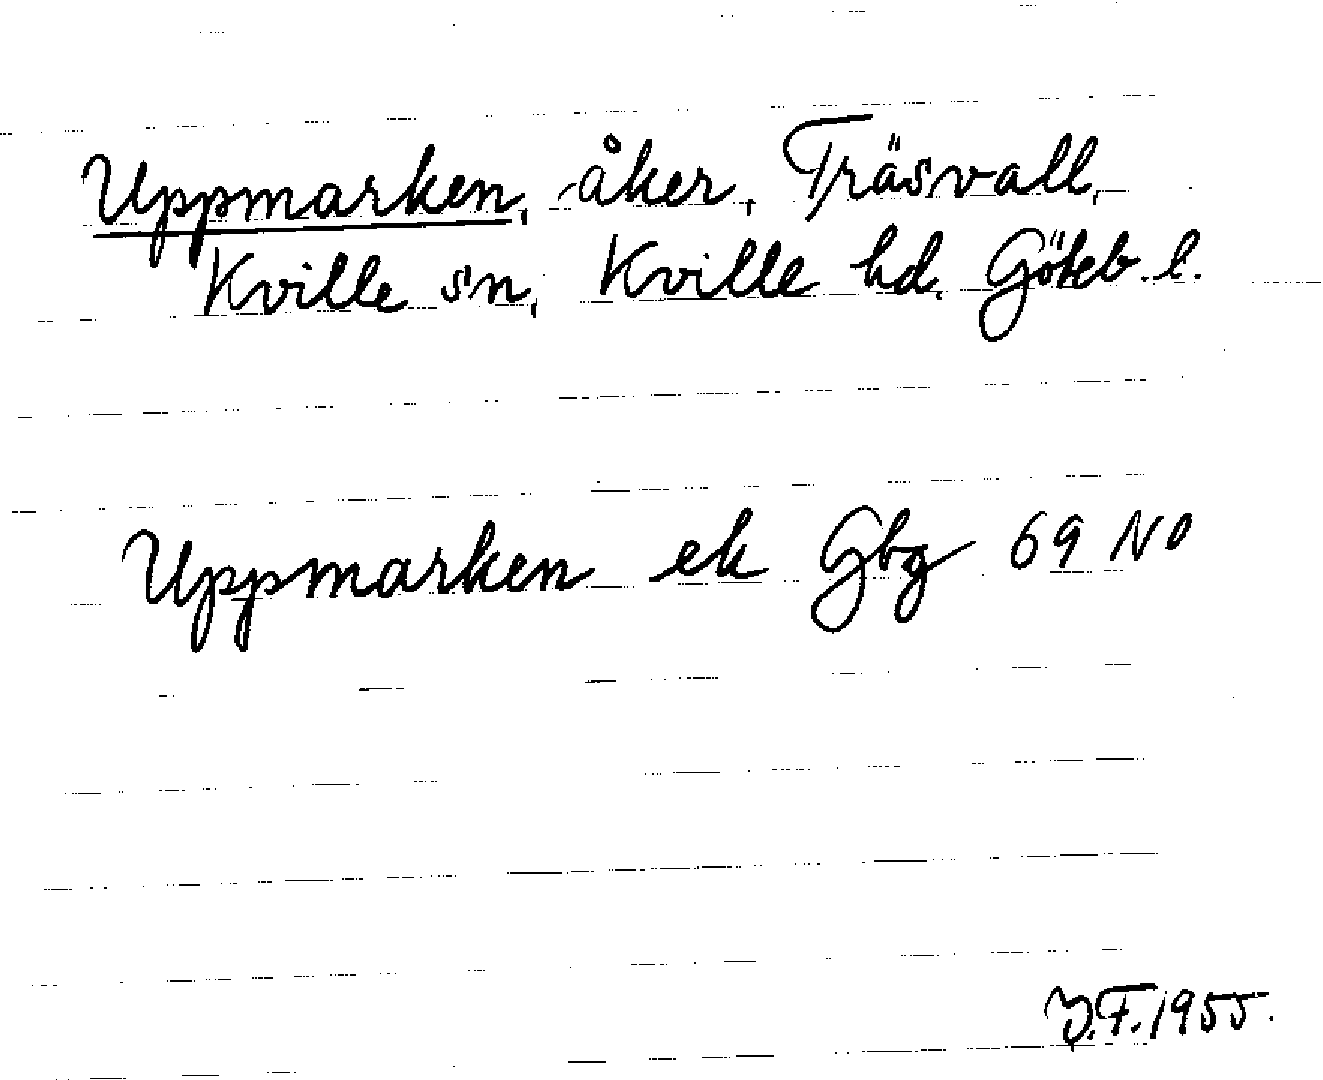 Uppmarken, åker, Träsvall,
Kville sn, Kville hd. Göteb. l.
Uppmarken ek Gbg 69 NO
J.F. 1955.